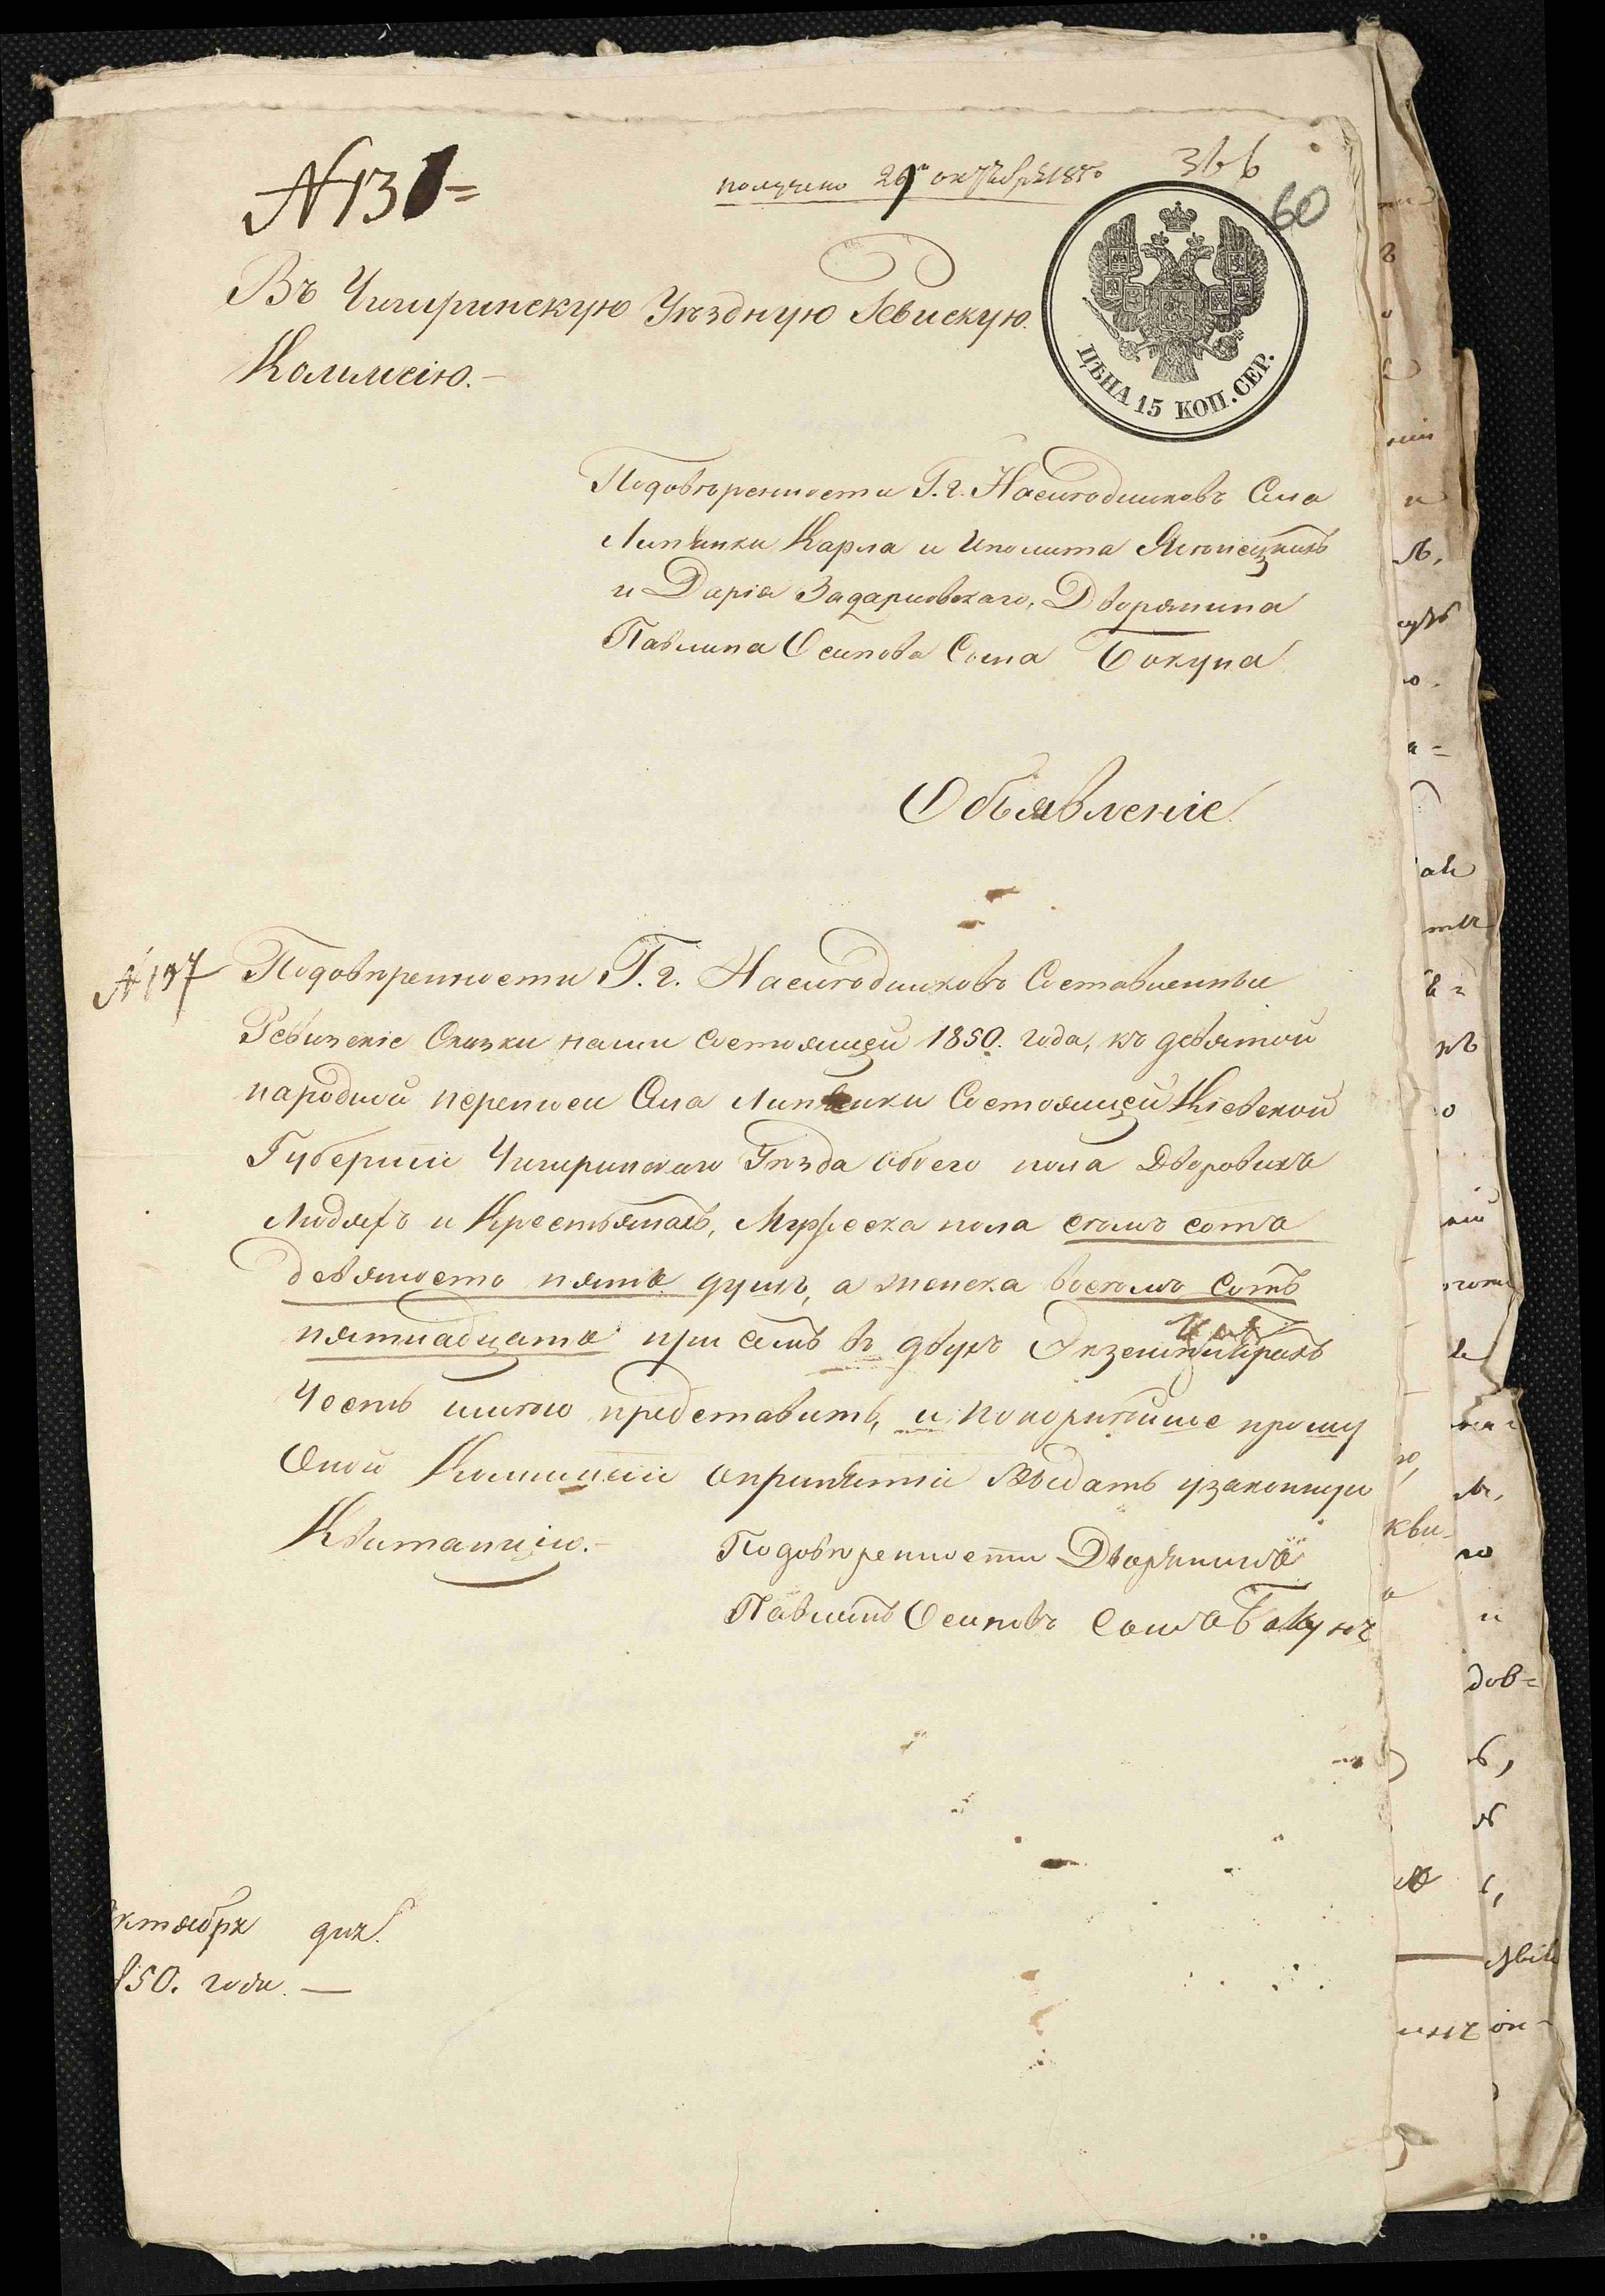 N 131=
получено 29го октября 1850
366
60
Въ Чигиринскую Уѣздную Ревискую
Коммсію.-
ЦѢНА 15 КОП. СЕР.
Подовѣренности Г.г. Наслѣдниковъ Сила
Липянки Карла и Иполита
и Дарія Дворянина
Павлина Осипова Сына Бокуна
Объявленіе
N 137
Подовѣренности Г.г. Наслѣдниковъ Составленныи
Ревизскіе Сказки наши Состоящей 1850. года, къ девятой
народной переписи Сила Липянки Состоящей Кіевской
Губерніи Чигиринскаго Уѣзда обоего пола Дворовихъ
Людяхъ и Крестьянахъ, Мужеска пола семъ сотъ
девяносто пять душъ, а женска восемъ Сотъ
пятнадцать при семъ въ двухъ Экземплярахъ
Честь имѣю представить, и покорнѣйше прошу
Оной Коммисіи опринятіи Выдать узаконную
Квитанцію.-
Подовѣренности Дворянинъ
Павлинъ Осиповъ Сынъ Бакунъ
ктября дня
850. года. —
кви-
дов=